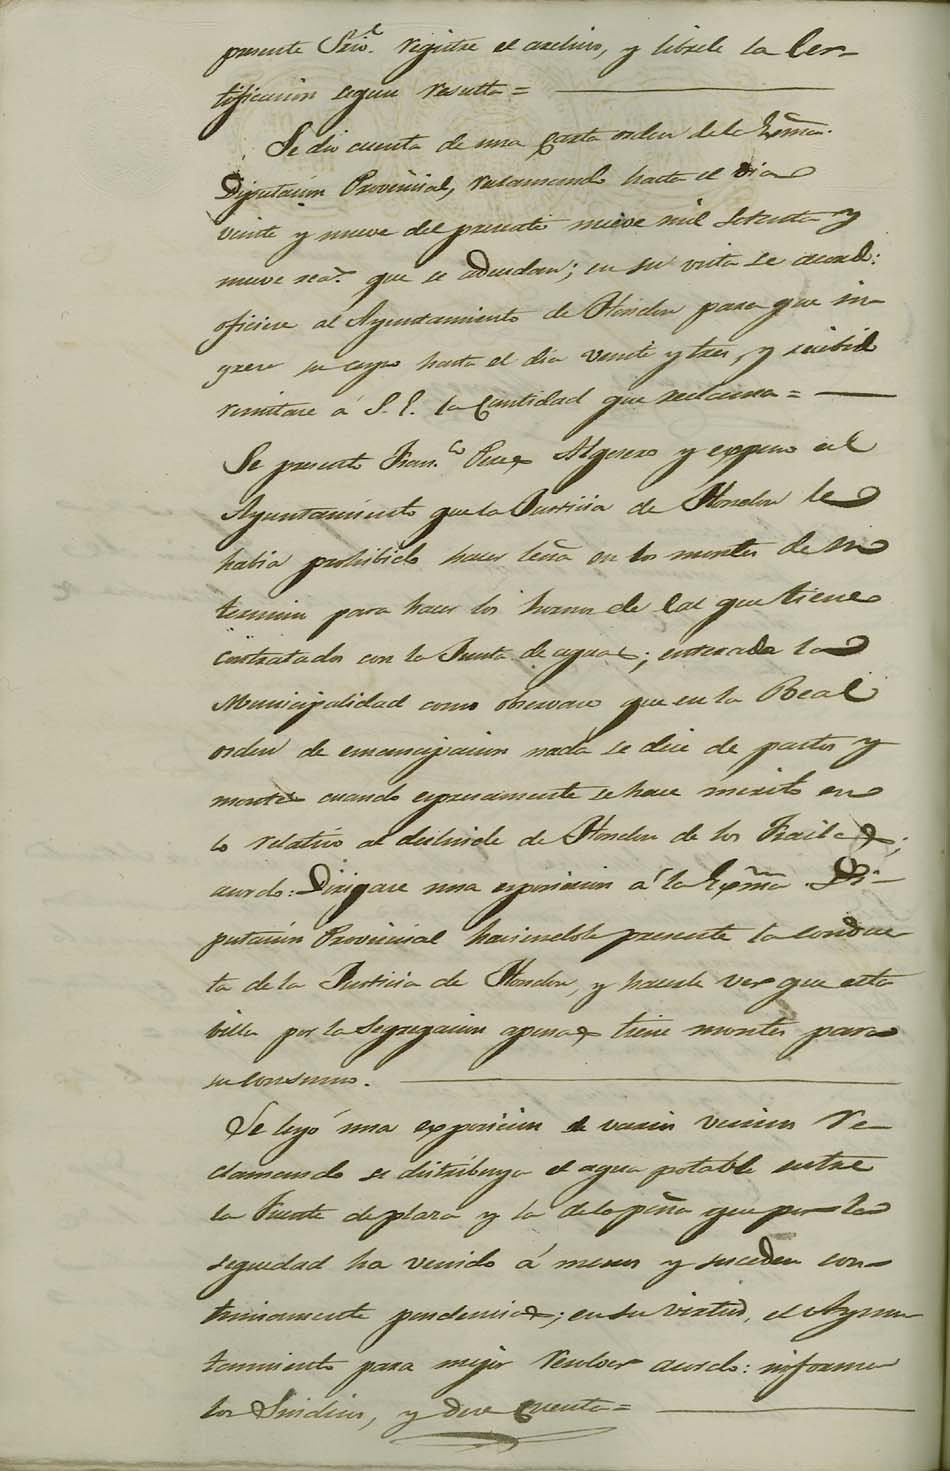 presente Srio. registre el archivo, y librele la Cer-
tificacion segun resulta =
Se dio cuenta de una Carta orden de la Exma.
Diputacion Provincial, reclamando hasta el dia
veinte y nueve del presente nueve mil setenta y
nueve rea.s que se adeudan; en su vista se acordó:
oficiese al Ayuntamiento de Hondon para que in-
grese su cupo hasta el dia veinte y tres, y recibido
remitase á S. E. la Cantidad que reclama =
Se presentó Fran.co Perez Algueró y expuso al
Ayuntamiento que la Justicia de Hondon le
habia prohibido hacer leña en los montes de su
termino para hacer los hornos de Cal que tiene
contratados con la Junta de aguas; enterada la
Municipalidad como observase que en la Real
orden de emancipacion nada se dice de pastos y
montes cuando espresamente se hace merito en
lo relativo al deslinde de Hondon de los Frailes;
acordó: Dirigase una exposicion á la Exma. Di-
putacion Provincial haciendole presente la conduc-
ta de la Justicia de Hondon, y hacerle ver que esta
villa por la segregacion apenas tiene montes para
su consumo.
Se leyó una exposicion de varios vecinos re-
clamando se distribuya el agua potable entre
la Fuente de plaza y la de la peña que por la
sequedad ha venido á menos y suceden con-
tinuamente pendencias; en su virtud, el Ayun-
tamiento para mejor resolver acordó: informen
los Sindicos, y dese Cuenta =